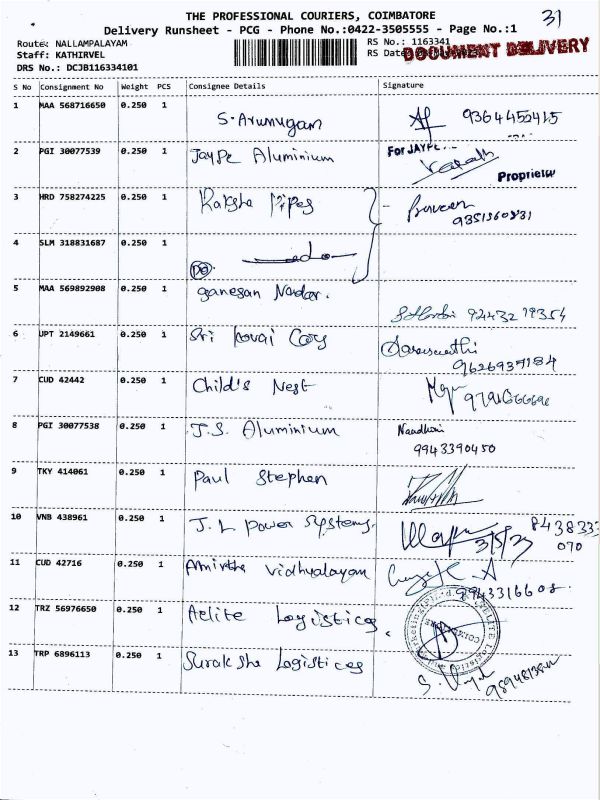 THE PROFESSIONAL COURIERS, COIMBATORE
31
Delivery Runsheet - PCG - Phone No.:0422-3505555 - Page No.:1
Route: NALLAMPALAYAM
RS No.: 1163341
Staff: KATHIRVEL
RS Date
DOCUMENT DELIVERY
DRS No.: DCJB116334101
S No Consignment No Weight PCS Consignee Details Signature
1 MAA 568716650 0.250 1 S. Arumugam 9364452415
2 PGI 30077539 0.250 1 Jaype Aluminium For JAYPE
Proprietor
3 HRD 758274225 0.250 1 Raksha Pipes Praveen
9351360831
4 SLM 318831687 0.250 1 do
5 MAA 569892908 0.250 1 ganesan Nadar.
9443279354
6 UPT 2149661 0.250 1 Sri kovai Cos Saraswathi
9626937184
7 CUD 42442 0.250 1 Child's Nest
8 PGI 30077538 0.250 1 J.S. Aluminium Nandhini
9943390450
9 TKY 414061 0.250 1 Paul Stephen
10 VNB 438961 0.250 1 J. L power systems. 3/5/23 8438333
070
11 CUD 42716 0.250 1 Amirtha vidhyalayam
9943316608
12 TRZ 56976650 0.250 1 Aelite Logistics
13 TRP 6896113 0.250 1 Suraksha Logistices